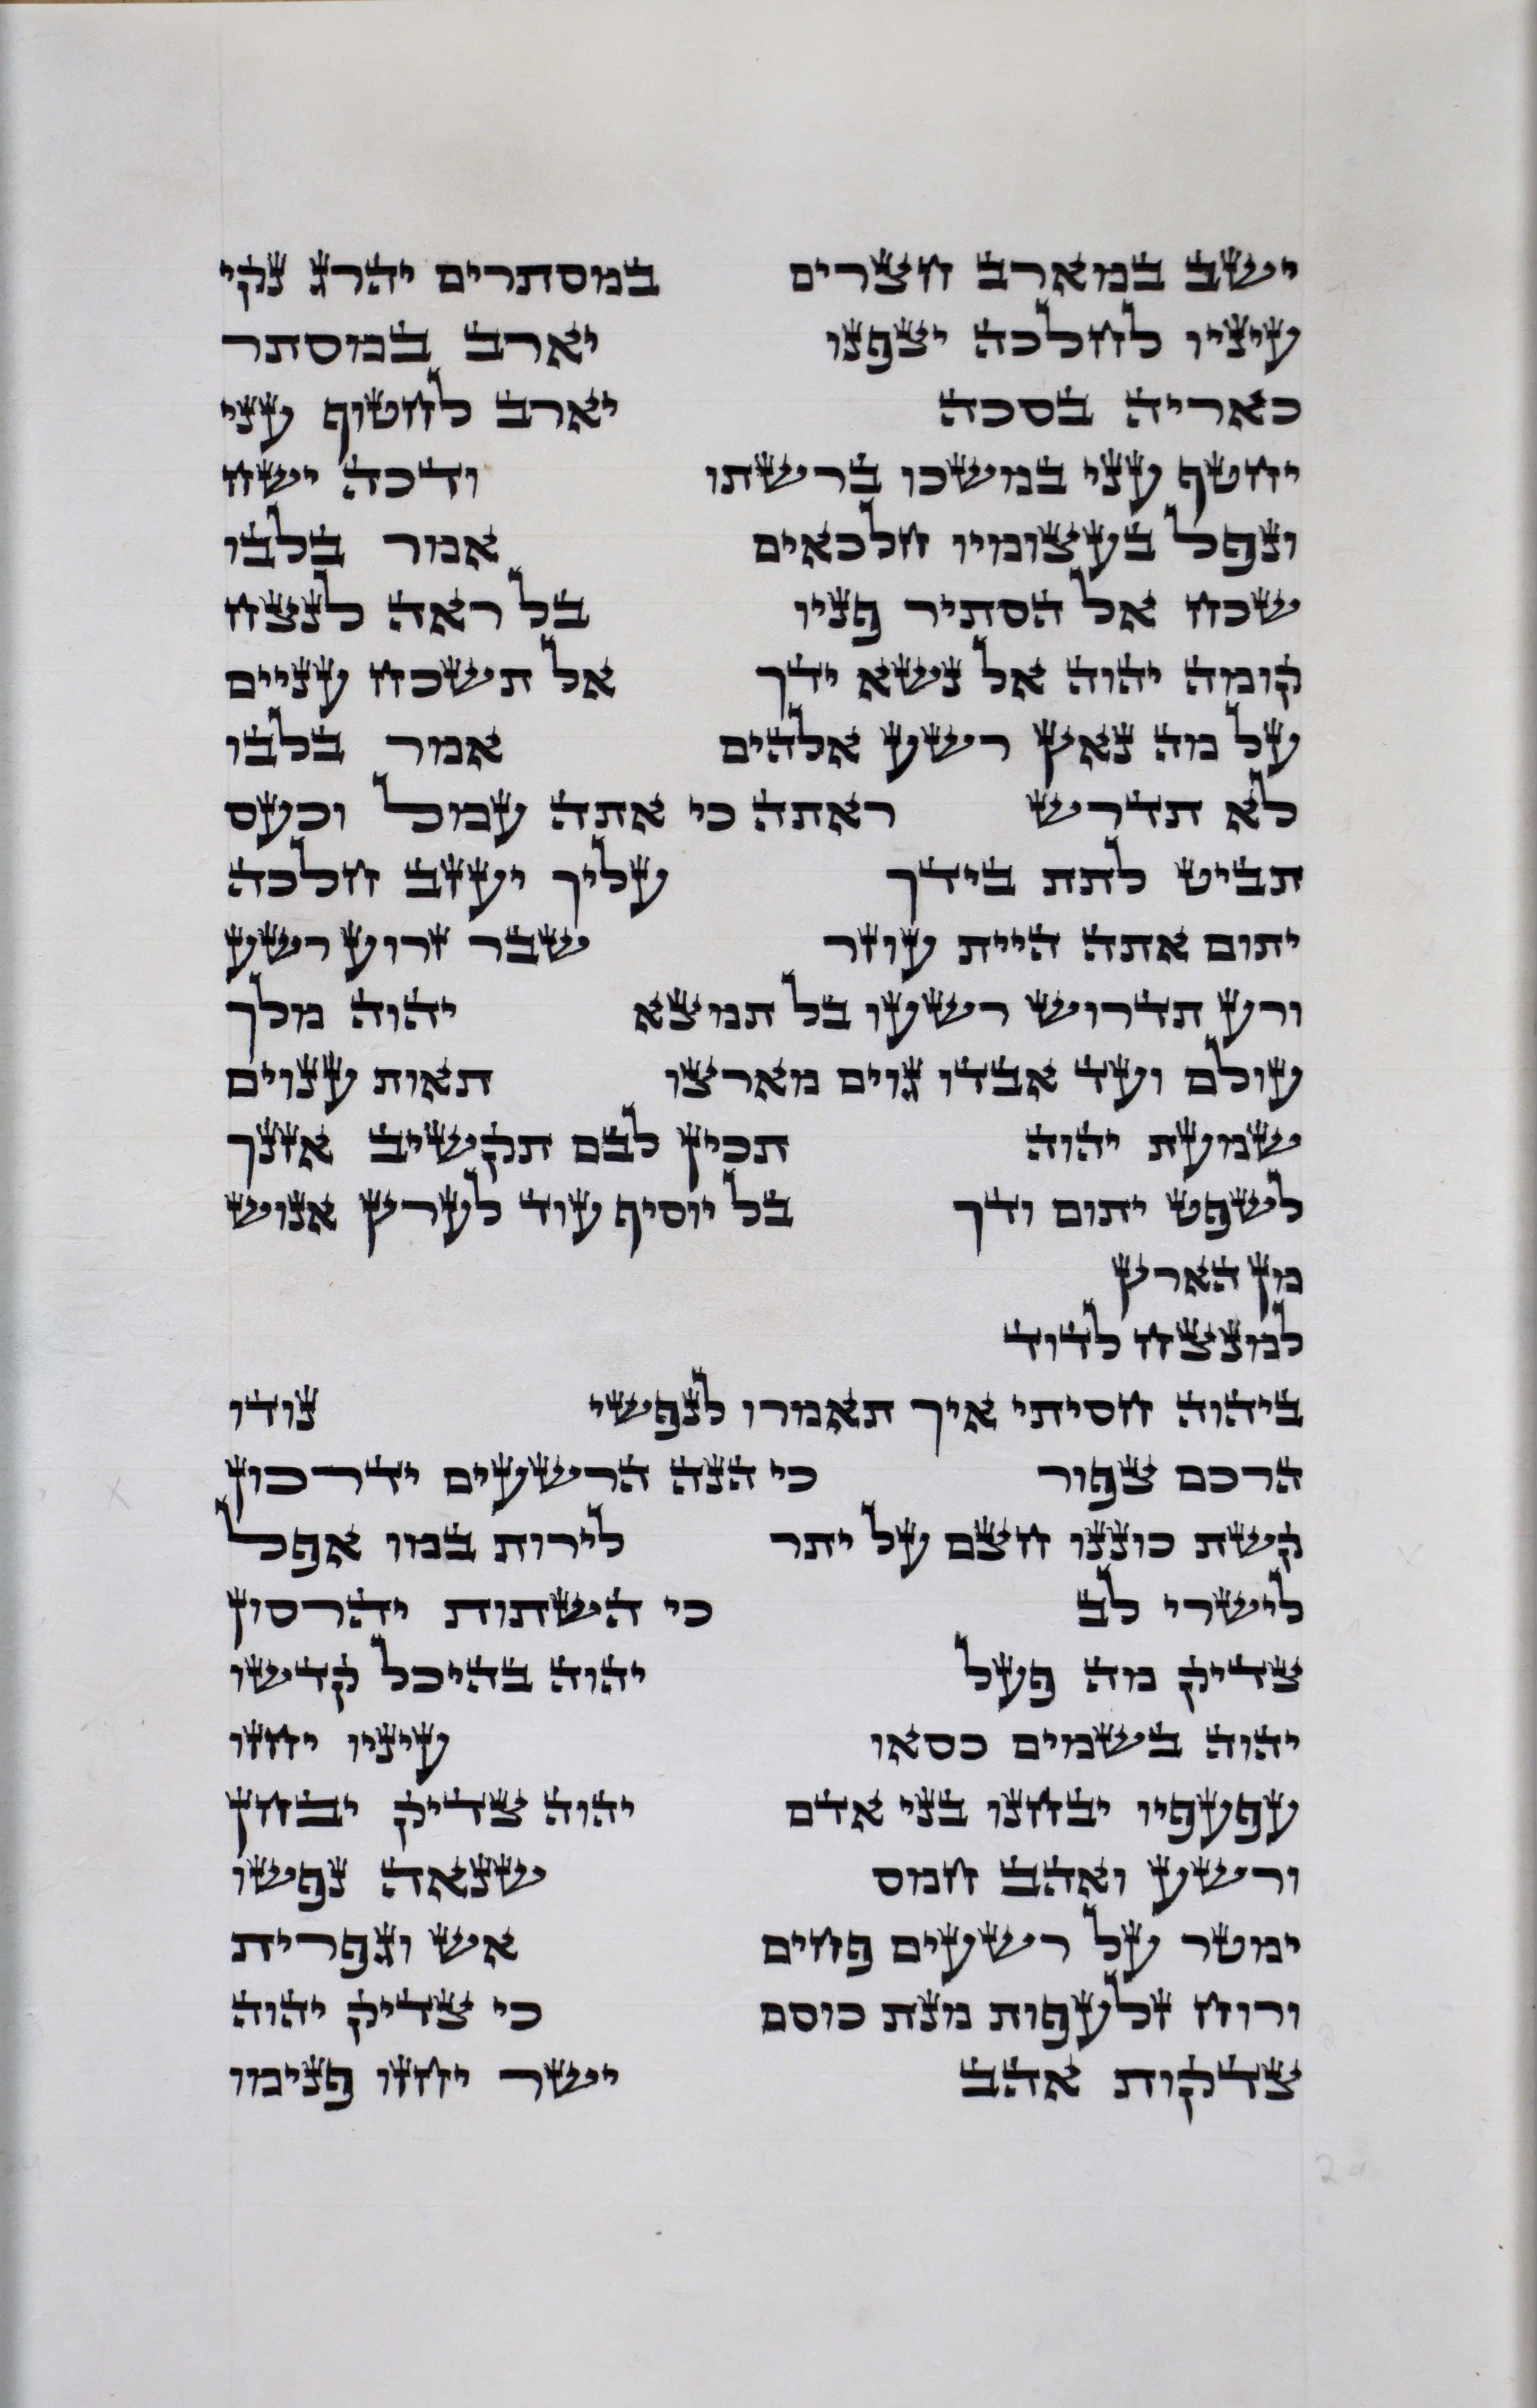 ישב במארב חצרים במסתרים יהרג נקי
עיניו לחלכה יצפנו יארב במסתר
כאריה בסכה יארב לחטוף עני
יחטף עני במשכו ברשתו ודכה ישח
ונפל בעצומיו חלכאים אמר בלבו
שכח אל הסתיר פניו בל ראה לנצח
קומה יהוה אל נשא ידך אל תשכח עניים
על מה נאץ רשע אלהים אמר בלבו
לא תדרש ראתה כי אתה עמל וכעס
תביט לתת בידך עליך יעזב חלכה
יתום אתה היית עוזר שבר זרוע רשע
ורע תדרוש רשעו בל תמצא יהוה מלך
עולם ועד אבדו גוים מארצו תאות ענוים
שמעת יהוה תכין לבם תקשיב אזנך
לשפט יתום ודך בל יוסיף עוד לערץ אנוש
מן הארץ
למנצח לדוד
ביהוה חסיתי איך תאמרו לנפשי נודו
הרכם צפור כי הנה הרשעים ידרכון
קשת כוננו חצם על יתר לירות במו אפל
לישרי לב כי השתות יהרסון
צדיק מה פעל יהוה בהיכל קדשו
יהוה בשמים כסאו עיניו יחזו
עפעפיו יבחנו בני אדם יהוה צדיק יבחן
ורשע ואהב חמס שנאה נפשו
ימטר על רשעים פחים אש וגפרית
ורוח זלעפות מנת כוסם כי צדיק יהוה
צדקות אהב ישר יחזו פנימו